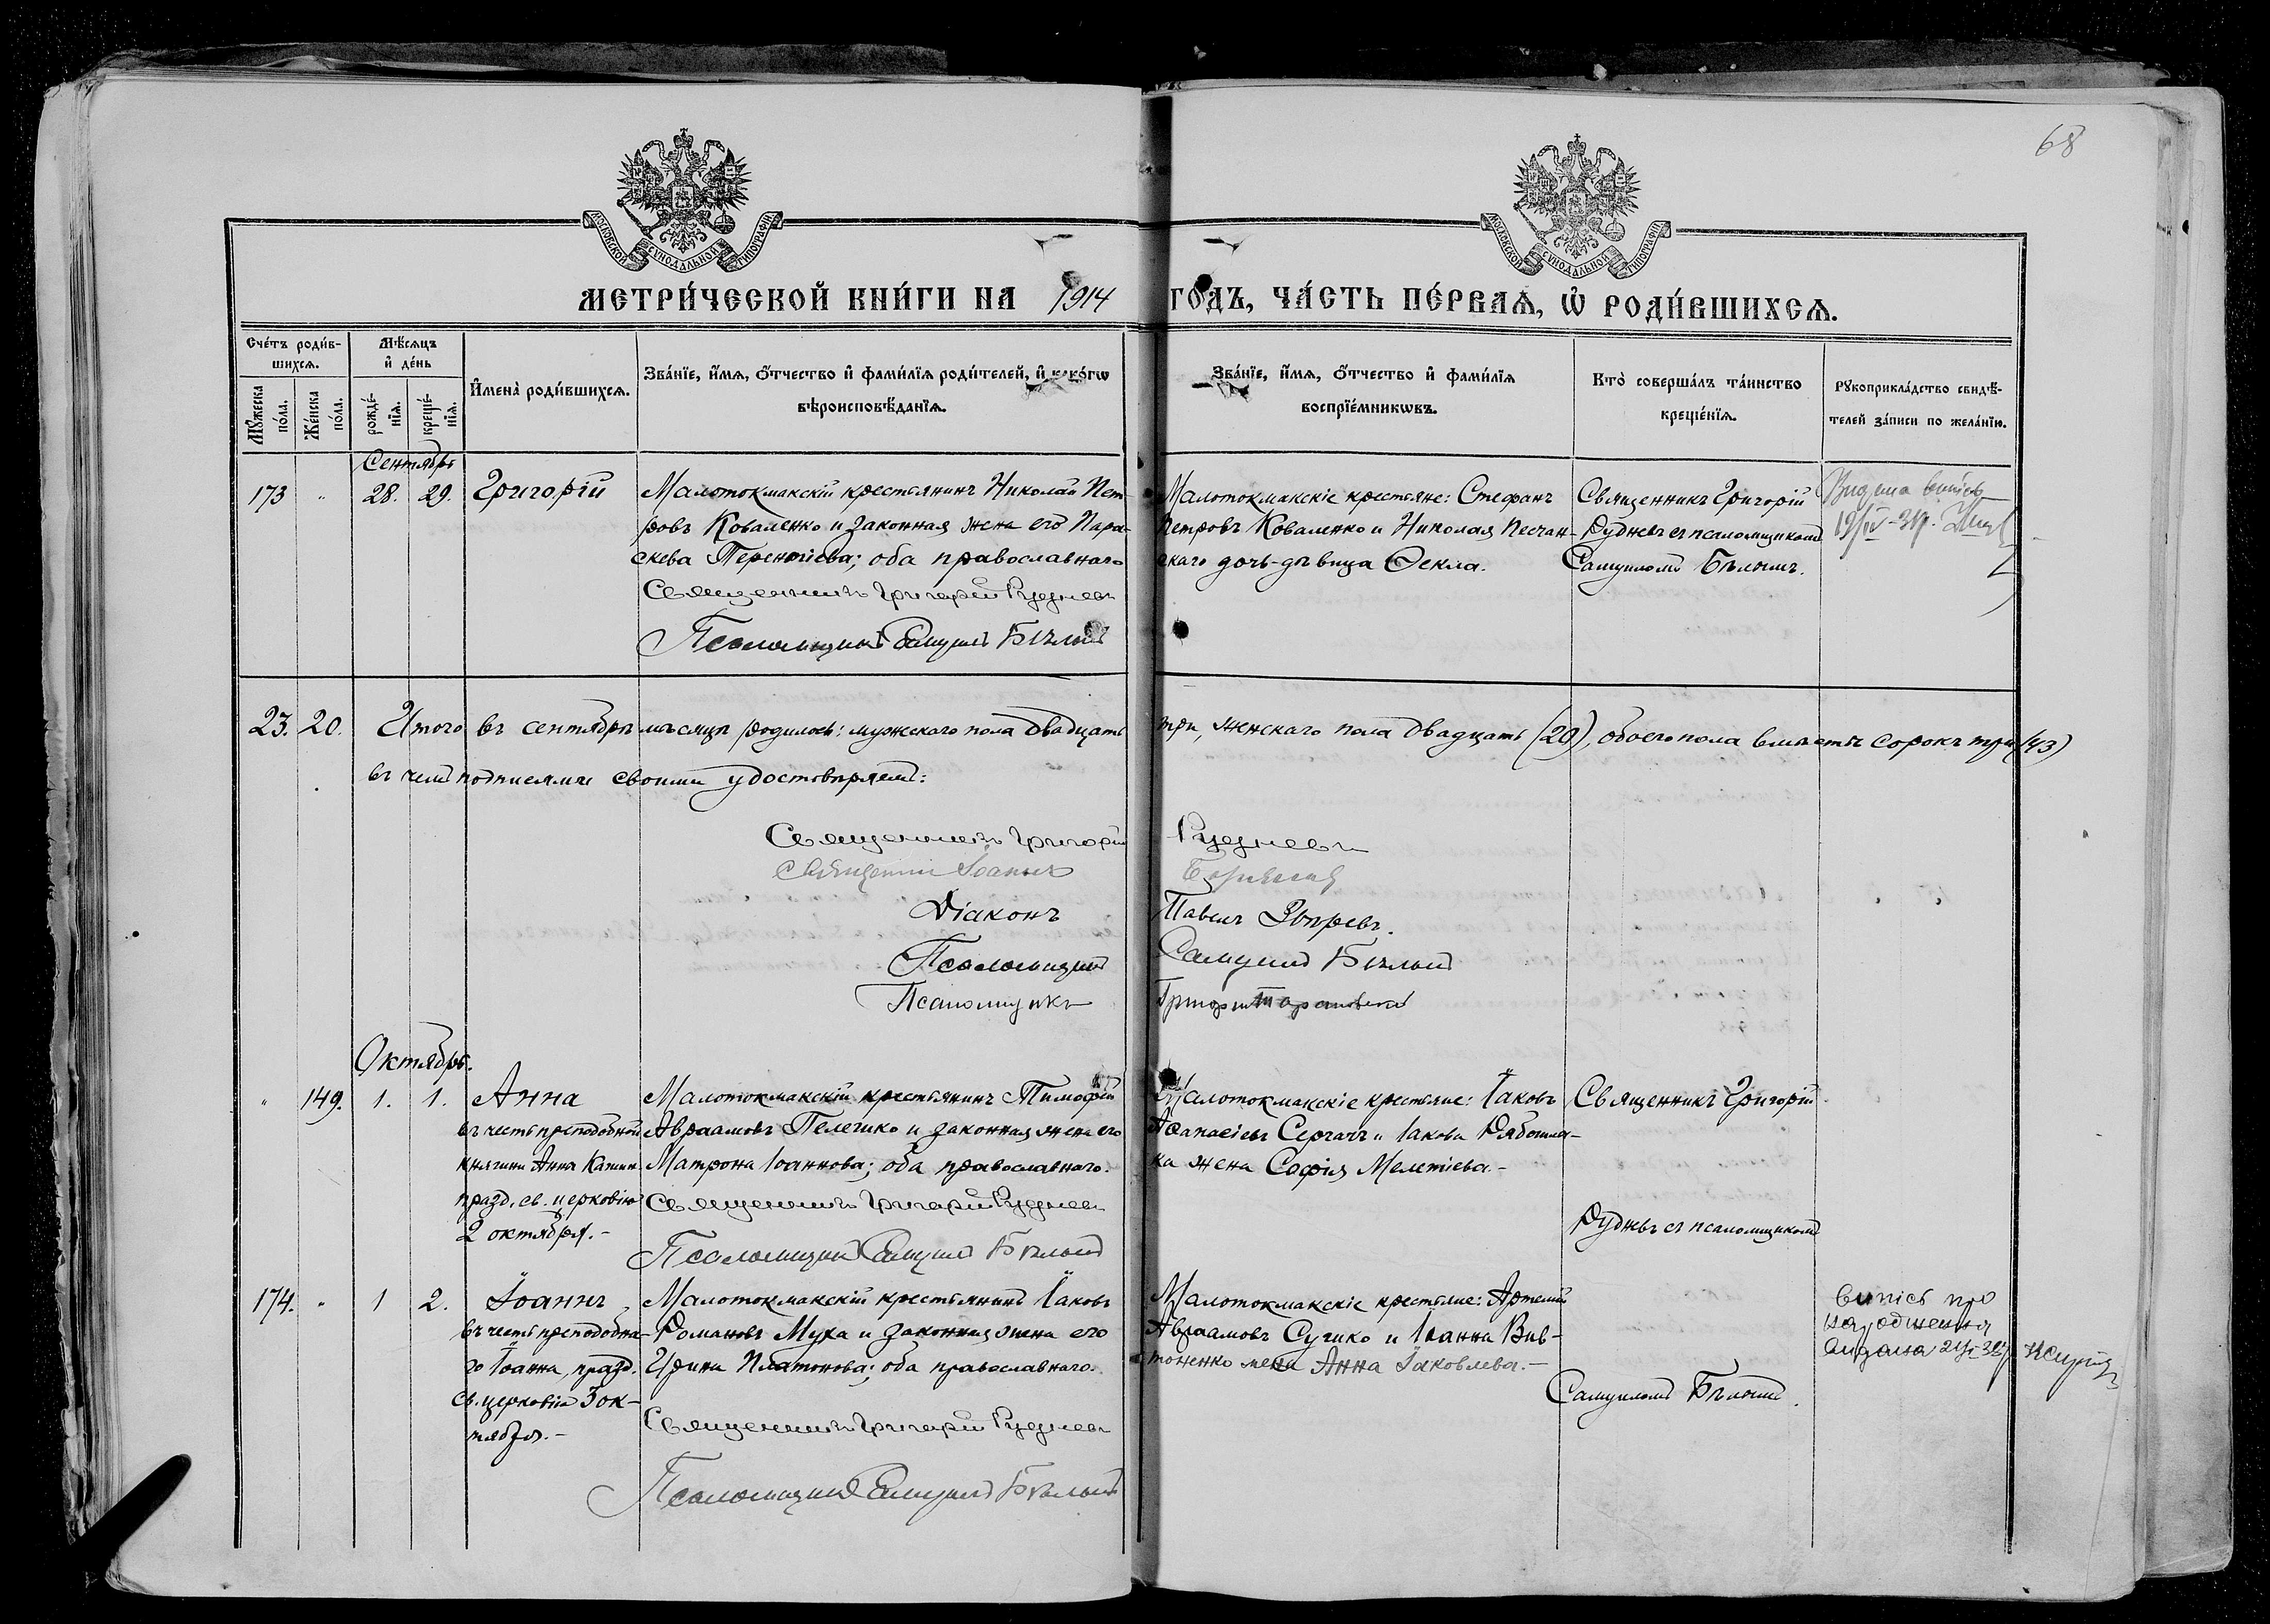 68
МОСКОВСКОЙ СУНОДАЛЬНОЙ ТИПОГРАФІИ
МОСКОВСКОЙ СУНОДАЛЬНОЙ ТИПОГРАФІИ
МЕТРИ́ЧЕСКОЙ КНИ́ГИ НА 1914 ГОДЪ, ЧА́СТЬ ПЕ́РВАѦ, Ѡ҆ РОДИ́ВШИХСѦ.
Сче́тъ роди́в-
шихсѧ.
Мꙋ́жеска
по́ла.
Же́нска
по́ла.
Мѣ́сѧцъ
и҆ де́нь
рожде́-
нїѧ.
креще́-
нїѧ.
И҆мена̀ роди́вшихсѧ.
Зва́нїе, и҆́мѧ, ѻ҆́тчество и҆ фами́лїѧ роди́телей, и҆ како́гѡ
вѣроисповѣ́данїѧ.
Зва́нїе, и҆́мѧ, ѻ҆́тчество и҆ фами́лїѧ
воспрїе́мникѡвъ.
Кто̀ соверша́лъ та́инство
креще́нїѧ.
Рꙋкоприкла́дство свидѣ́-
телей за́писи по жела́нїю.
Сентябрь
173 „ 28. 29. Григорій
Малотокмакскій крестьянинъ Николай Пет-
ровъ Коваленко и законная жена его Пара-
скева Терентіева; оба православнаго
Священникъ Григорій Рудневъ
Псаломщикъ Самуилъ Бѣлый
Малотокмакскіе крестьяне: Стефанъ
Петровъ Коваленко и Николая Песчан-
скаго дочь-дѣвица Ѳекла.
Священникъ Григорій
Рудневъ съ псаломщикомъ
Самуиломъ Бѣлымъ.
Видана випісь
23. 20. Итого въ сентябрѣ мѣсяцѣ родилось: мужескаго пола двадцать три, женскаго пола двадцать (20), обоего пола вмѣстѣ сорокъ три (43)
въ чемъ подписями своими удостовѣряемъ:
Священникъ Григорій Рудневъ
Священникъ Іоаннъ
Діаконъ Павелъ Звѣревъ.
Псаломщикъ Самуилъ Бѣлый
Псаломщикъ Григорій
Октябрь.
„ 149. 1. 1. Анна
въ честь преподобной
княгини Анны Кашин.
празд. св. церковію
2 октября.-
Малотокмакскій крестьянинъ Тимофей
Авраамовъ Пелешко и законная жена его
Матрона Іоаннова; оба православнаго.
Священникъ Григорій Рудневъ
Псаломщикъ Самуилъ Бѣлый
Малотокмакскіе крестьяне: Іаковъ
Аѳанасіевъ Сергачъ и Іакова Рябошап-
ка жена Софія Мелетіева.-
Священникъ Григорій
Рудневъ съ псаломщикомъ
174. „ 1 2. Іоаннъ
въ честь преподобна-
го Іоанна, празд.
св. церковію 3 ок-
тября.-
Малотокмакскій крестьянинъ Іаковъ
Романовъ Муха и законная жена его
Ирина Платонова; оба православнаго.
Священникъ Григорій Рудневъ
Псаломщикъ Самуилъ Бѣлый
Малотокмакскіе крестьяне: Артемій
Авраамовъ Сушко и Іоанна Вив-
тоненко жена Анна Іаковлева.-
Самуиломъ Бѣлымъ.
випісь про
народження
видана